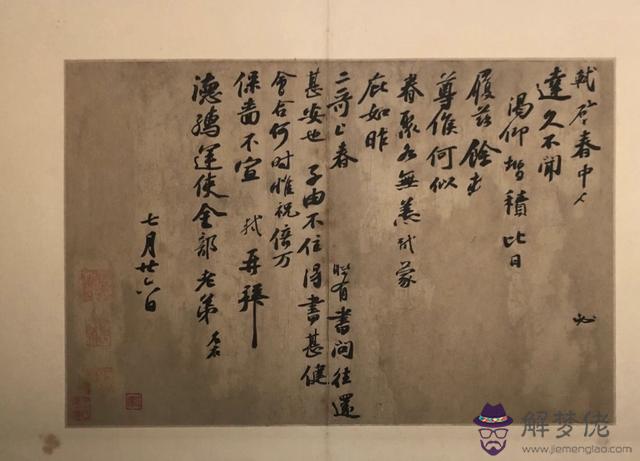 軾啓春中人 必
達久不聞
渴仰增積比日
履茲餘
尊候何似
眷聚各無恙軾蒙
庇如昨
二哥上春 有書問往還
甚安也 子由不住得書甚健
會合何時惟祝倍万
保嗇不宣 軾再拜
德孺運使金部老弟
七月廿六日
解梦佬
www.jiemenglao.com